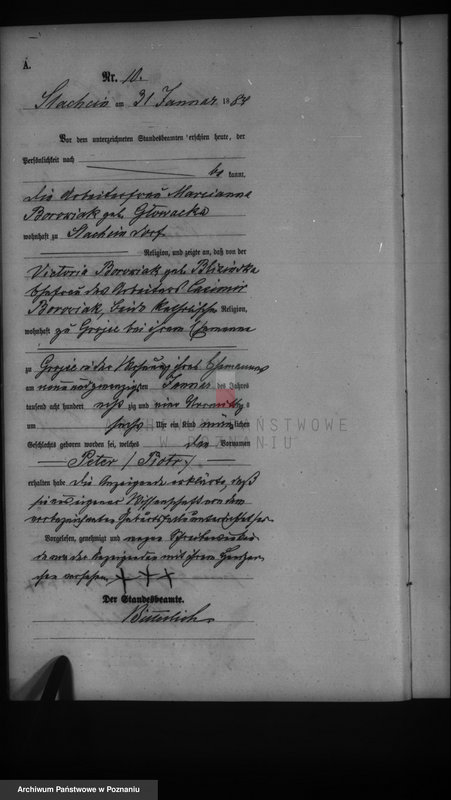 A.
Nr. 10.
am 31 Januar 1884
Vor dem unterzeichneten Standesbeamten erschien heute, der
Persönlichkeit nach
be kannt,
die Arbeiterfrau Marcianna
Borowiak geb. Głowacka
wohnhaft zu Dorf
Religion, und zeigte an, daß von der
Victoria Borowiak geb.
Ehefrau des Arbeiters Casimir
Borowiak, beide katholischer Religion,
wohnhaft zu Grojec bei ihrem Ehemanne
zu Grojec in der Wohnung ihres Ehemannes
am neun und zwanzigsten Januar des Jahres
tausend acht hundert acht zig und vier Vormittags
um sechs Uhr ein Kind männlichen
Geschlechts geboren worden sei, welches den Vornamen
Peter (Piotr)
erhalten habe. Die Anzeigende erklärte, daß
sie aus eigener Wissenschaft von dem
vorbezeichneten Geburtsfalle unterrichtet sei.
Vorgelesen, genehmigt und wegen
von der Anzeigenden mit ihrem Handzei-
chen versehen. + + +
Der Standesbeamte.
Bitterlich
ARCHIWUM PAŃSTWOWE
W POZNANIU
Archiwum Państwowe w Poznaniu